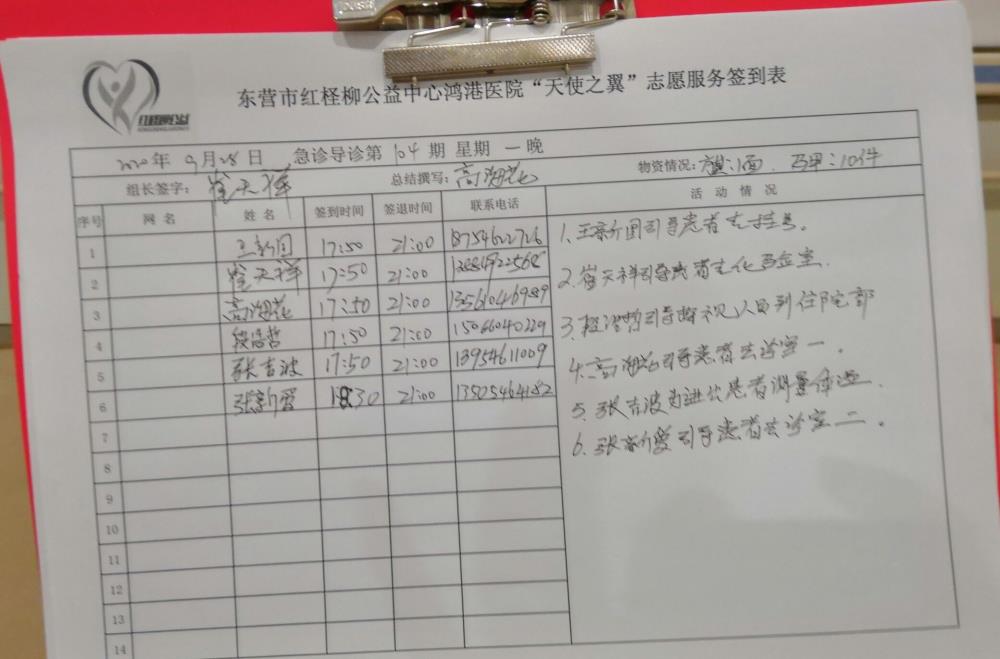 东营市红柽柳公益中心鸿港医院“天使之翼”志愿服务签到表
2020年 9月28日 急诊导诊第 104 期 星期 一晚
组长签字：崔天祥 总结撰写：高海花 物资情况：旗：1面、马甲：10件
序号 网名 姓名 签到时间 签退时间 联系电话 活动情况
1 王新国 17:50 21:00 18754622726
2 崔天祥 17:50 21:00
3 高海花 17:50 21:00 13561046989
4 17:50 21:00 15066040229
5 张吉波 17:50 21:00 13954611009
6 张新爱 18:30 21:00 13505464182
7
8
9
10
11
12
13
14
1、王新国引导患者去挂号。
2、崔天祥引导患者去化验室.
3、引导探视人员到住院部
4、高海花引导患者去诊室一.
5、张吉波为进机患者测量体温.
6、张新爱引导患者去诊室二.